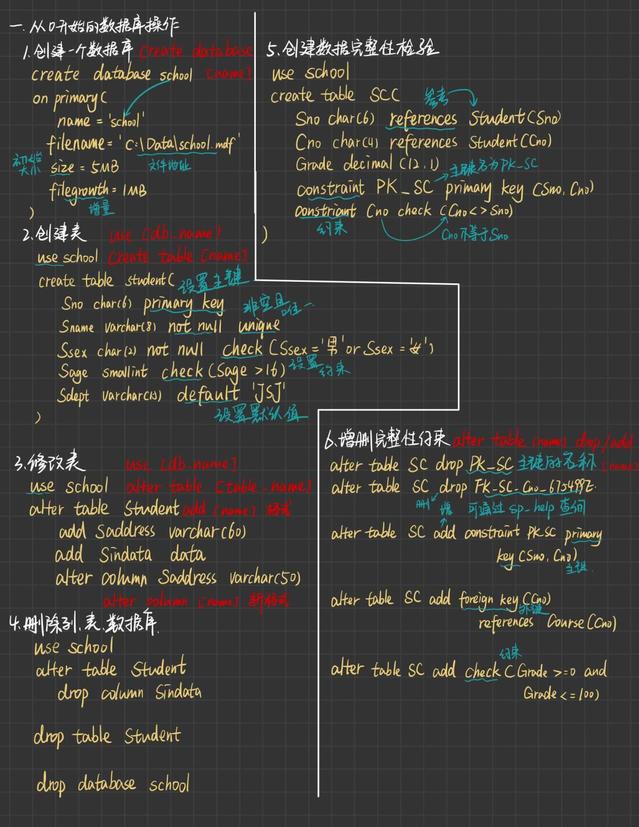 一.从0开始的数据库操作
1.创建一个数据库 create database [name]
create database school
on primary(
name = 'school'
filename = 'C:\Data\school.mdf'
初始大小 size = 5MB 文件地址
filegrowth = 1MB
增量
)
2.创建表 use [db.name]
use school create table [name]
create table student( 设置主键
Sno char(6) primary key 非空且唯一
Sname varchar(8) not null unique
Ssex char(2) not null check (Ssex = '男' or Ssex = '女')
Sage smallint check (Sage >16) 设置约束
Sdept varchar(13) default 'JSJ'
) 设置默认值
3.修改表 use [db.name]
use school alter table [table.name]
alter table Student add [name] 格式
add Saddress varchar(60)
add Sindata data
alter column Saddress varchar(50)
alter column [name] 新格式
4.删除列、表、数据库
use school
alter table Student
drop column Sindata
drop table Student
drop database school
5.创建数据完整性检验
use school
create table SCC 参考
Sno char(6) references Student(Sno)
Cno char(4) references Student(Cno)
Grade decimal (12,1) 主键名为PK_SC
constraint PK_SC primary key (Sno, Cno)
constriant Cno check (Cno<>Sno)
约束 Cno不等于Sno
)
6.增删完整性约束 alter table [name] drop/add [name]
alter table SC drop PK_SC 主键的名称
alter table SC drop FK_SC_Cno_
删 增 可通过 sp_help 查询
alter table SC add constraint PK_SC primary
key (Sno, Cno)
主键
alter table SC add foreign key (Cno)
外键
references Course(Cno)
约束
alter table SC add check (Grade >=0 and
Grade <=100)